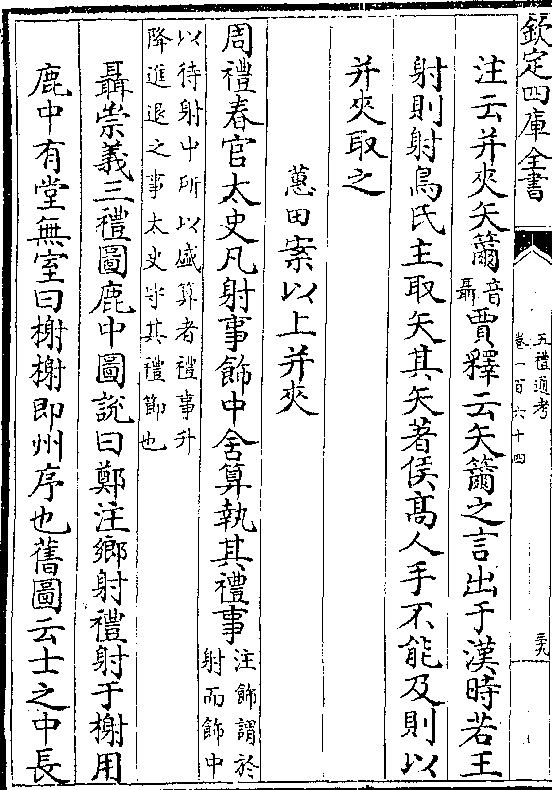 欽定四庫全書
五禮通考
卷一百六十四
注云并夾矢籋音聶賈釋云矢籋之言出于漢時若王
射則射鳥氏主取矢其矢著侯高人手不能及則以
并夾取之
蕙田案以上并夾
周禮春官太史凡射事飾中舍算執其禮事注飾謂於
射而飾中
以待射中所以盛算者禮事升
降進退之事太史守其禮節也
聶崇義三禮圖鹿中圖說曰鄭注鄉射禮射于榭用
鹿中有堂無室曰榭榭即州序也舊圖云士之中長